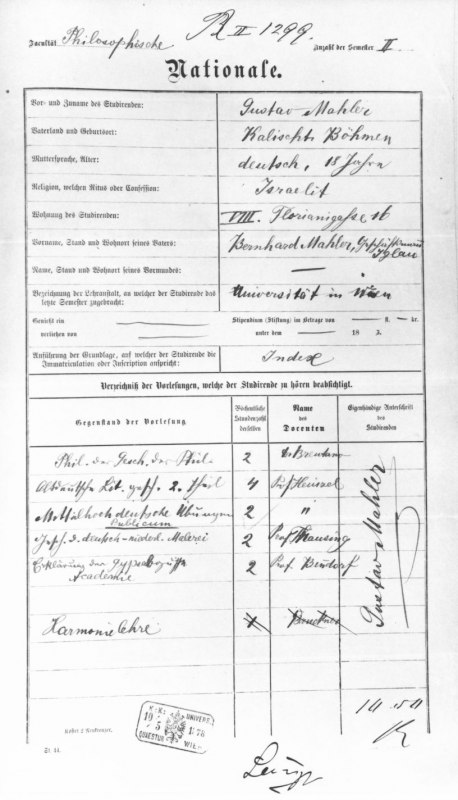 R II 1299.
Facultät Philosophische Anzahl der Semester II
Nationale.
Vor- und Zuname des Studirenden: Gustav Mahler
Vaterland und Geburtsort: Kalischt Böhmen
Muttersprache, Alter: deutsch, 18 Jahre
Religion, welchen Ritus oder Confession: Israelit
Wohnung des Studirenden: VIII. Florianigasse 16
Vorname, Stand und Wohnort seines Vaters: Bernhard Mahler, Iglau
Name, Stand und Wohnort seines Vormundes: —
Bezeichnung der Lehranstalt, an welcher der Studirende das
letzte Semester zugebracht: Universität in Wien
Genießt ein Stipendium (Stiftung) im Betrage von fl. kr.
verliehen von unter dem 18 Z.
Anführung der Grundlage, auf welcher der Studirende die
Immatriculation oder Inscription anspricht: Index
Verzeichniß der Vorlesungen, welche der Studirende zu hören beabsichtigt.
Gegenstand der Vorlesung
Wöchentliche
Stundenzahl
derselben
Name
des
Docenten
Eigenhändige Unterschrift
des
Studirenden
Phil. der Gesch. der Phil. 2 Dr Brentano
Altdeutsche Lit. gesch. 2. Theil 4 Prof Heinzel
Mittelhochdeutsche Übungen 2 "
Publicum
Gesch. d. deutsch-niederl. Malerei 2 Prof Thausing
Erklärung der Gypsabgüsse 2 Prof
Academie
Harmonielehre 4 Bruckner
Gustav Mahler
K. K. UNIVERS.
QUAESTUR WIEN
St. 14.